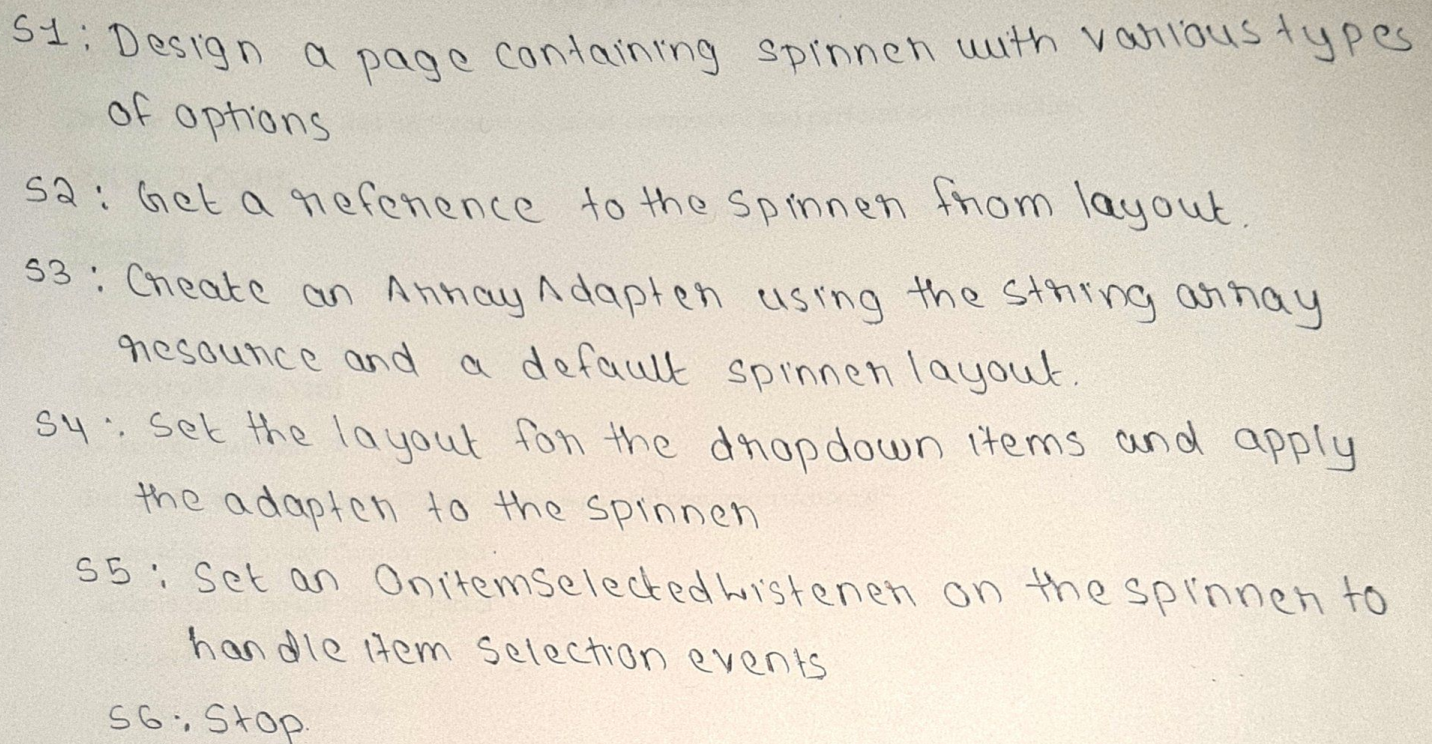 S1: Design a page containing spinner with various types
of options
S2: Get a reference to the spinner from layout.
S3: Create an Array Adapter using the string array
resource and a default spinner layout.
S4: Set the layout for the dropdown items and apply
the adapter to the spinner
S5: Set an OnitemSelectedListener on the spinner to
handle item selection events
S6: Stop.